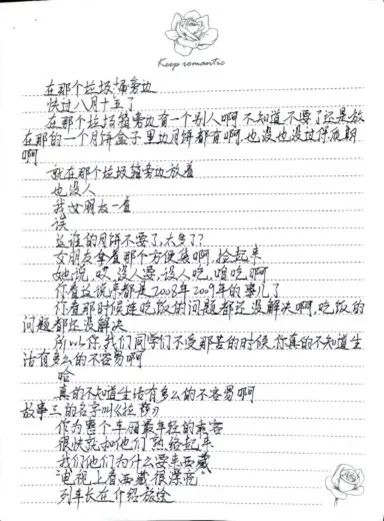 Keep romantic
在那个垃圾桶旁边
快过八月十五了
在那个垃圾箱旁边有一个别人啊 不知道不要了还是放
在那的一个月饼盒子里边月饼都有啊,也没也没过保质期
啊
就在那个垃圾箱旁边放着
也没人
我女朋友一看
诶
这谁的月饼不要了,太多了?
女朋友拿着那个方便袋啊,捡起来
她说,哎,没人要,没人吃,咱吃啊
你看这说来都是2008年2009年的事儿了
你看那时候连吃饭的问题都还没解决啊,吃饭的
问题都还没解决
所以你,我们同学们不受那苦的时候,你真的不知道生
活有多么的不容易啊
哈
真的不知道生活有多么的不容易啊
故事三的名字叫《拉萨》
作为整个车厢最年轻的乘客
很快就和他们熟络起来
我们他们为什么要来西藏
电视上看西藏很漂亮
列车长在介绍旅途